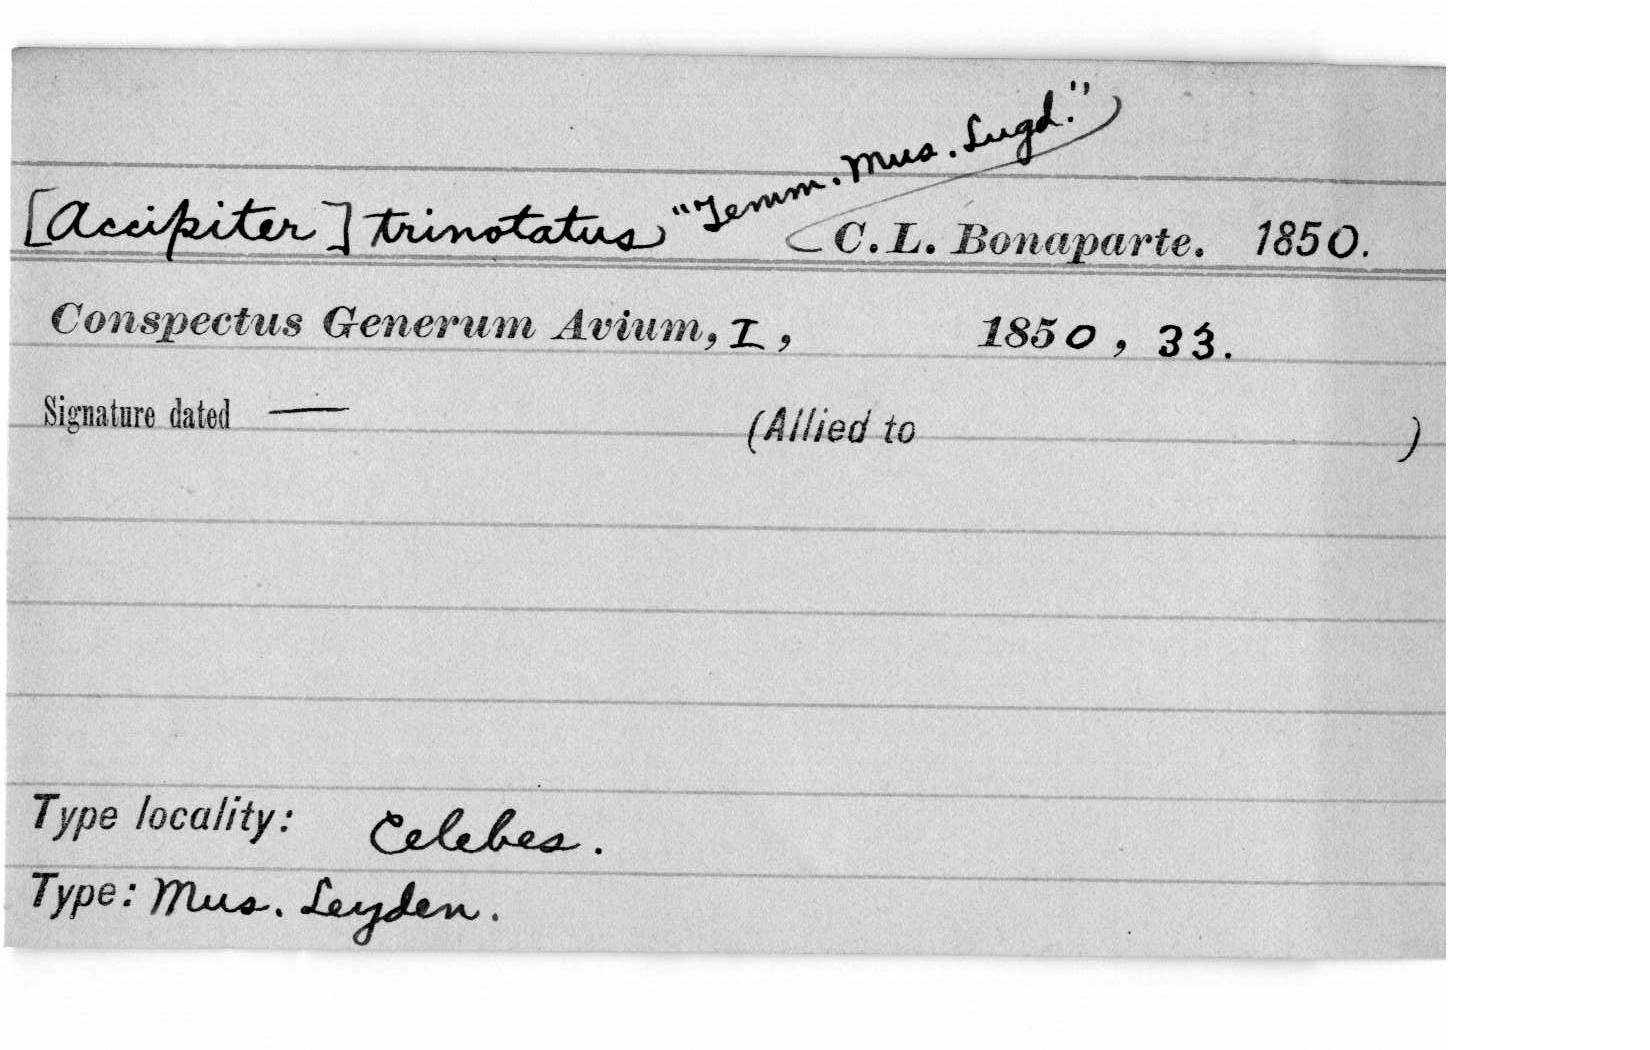 [Accipiter] trinotatus "Temm. Mus. Lugd." C. L. Bonaparte. 1850.
Conspectus Generum Avium, I, 1850, 33.
Signature dated — (Allied to )
Type locality: Celebes.
Type: Mus. Leyden.